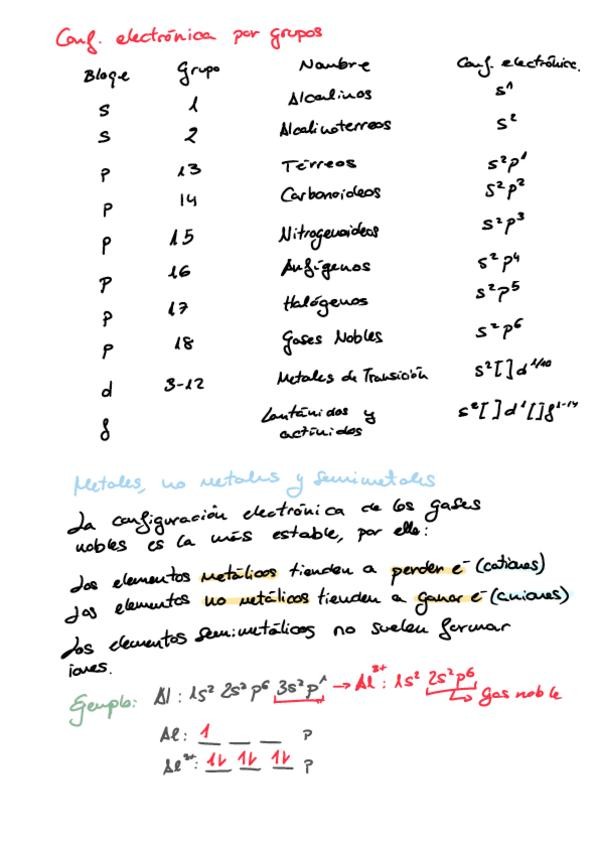 Conf. electrónica por grupos
Bloqe Grupo Nombre Conf. electrónica.
s 1 Alcalinos s¹
s 2 Alcalinoterreos s²
p 13 Térreos s²p¹
p 14 Carbonoideos s²p²
p 15 Nitrogenoideos s²p³
p 16 Anfígenos s²p⁴
p 17 Halógenos s²p⁵
p 18 Gases Nobles s²p⁶
d 3-12 Metales de Transición s²[]d¹/¹⁰
f Lantánidos y s²[]d¹[]f¹⁻¹⁴
actínidos
Metales, no metales y semimetales
La configuración electrónica de los gases
nobles es la más estable, por ello:
Los elementos metálicos tienden a perder e⁻ (cationes)
Los elementos no metálicos tienden a ganar e⁻ (aniones)
Los elementos semimetálicos no suelen formar
iones.
Ejemplo: Al: 1s² 2s² p⁶ 3s²p¹ → Al³⁺: 1s² 2s²p⁶
↳ gas noble
Al: 1 _ _ p
Al³⁺: 1↓ 1↓ 1↓ p